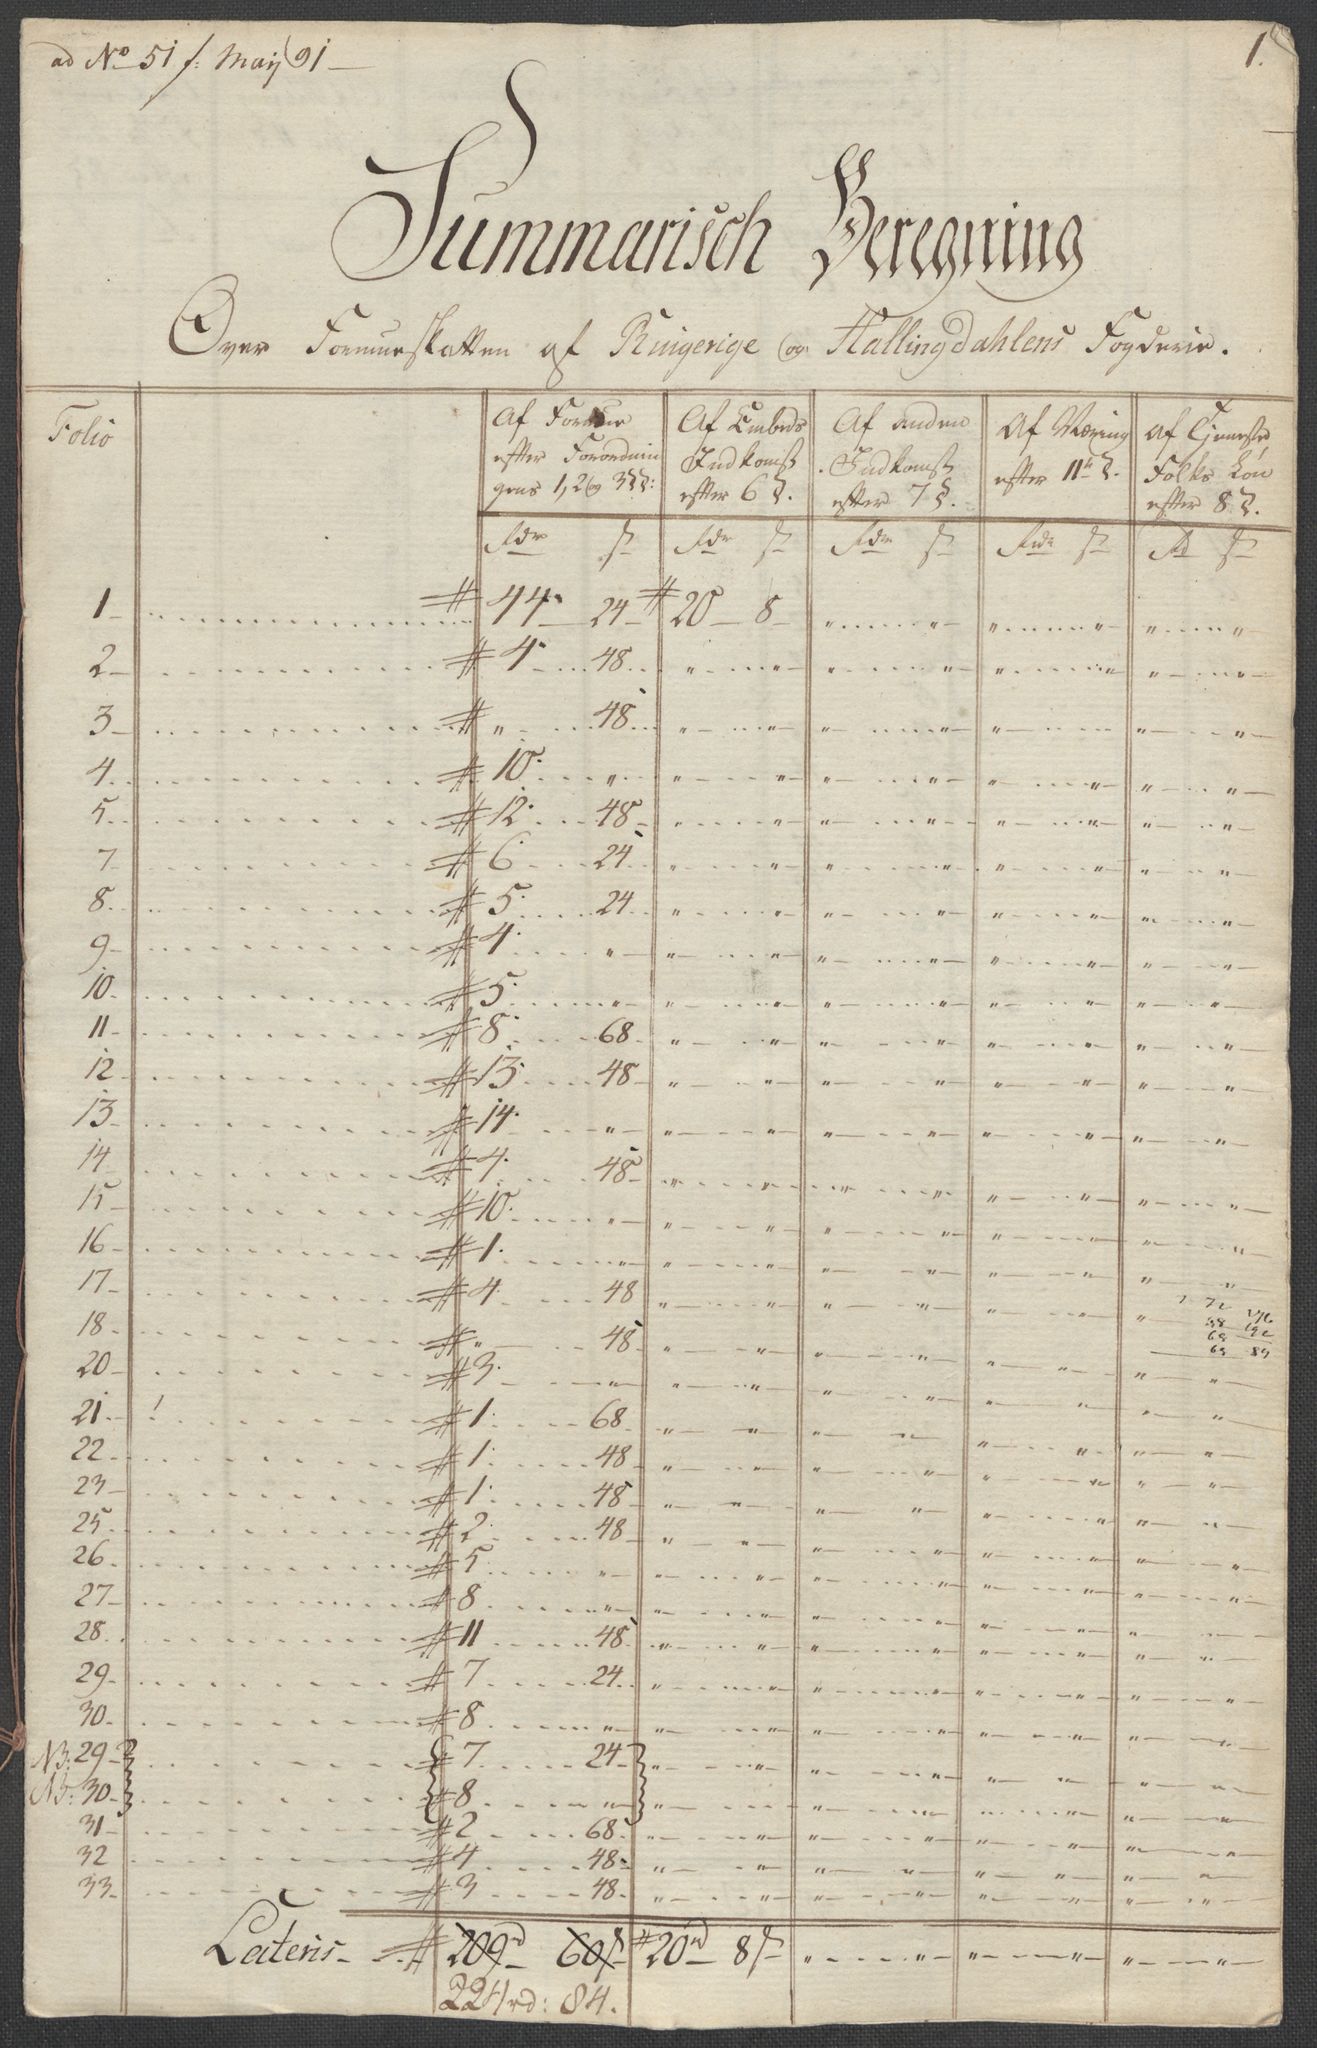 ad No 51 f: Maij 91
1.
Summarisch Beregning
Over Formueskatten af Ringerige og Hallingdahlens Fogderie.
Folio
Af Formue efter Forordningens 1, 2 og 3 §§:
Af Embeds Indkomst efter 6 §.
Af anden Indkomst efter 7 §.
Af Næring efter 11te §.
Af Tjeneste Folks Løn efter 8 §.
Rdr s Rdr s Rdr s Rdr s Rd s
1 44 24 20 8 " " " " " "
2 4 48 " " " " " " " "
3 " 48 " " " " " " " "
4 10 " " " " " " " " "
5 12 48 " " " " " " " "
7 6 24 " " " " " " " "
8 5 24 " " " " " " " "
9 4 " " " " " " " " "
10 5 " " " " " " " " "
11 8 68 " " " " " " " "
12 13 48 " " " " " " " "
13 14 " " " " " " " " "
14 4 48 " " " " " " " "
15 10 " " " " " " " " "
16 1 " " " " " " " " "
17 4 48 " " " " " " " "
18 " 48 " " " " " " " "
20 3 " " " " " " " " "
21 1 68 " " " " " " " "
22 1 48 " " " " " " " "
23 1 48 " " " " " " " "
25 2 48 " " " " " " " "
26 5 " " " " " " " " "
27 8 " " " " " " " " "
28 11 48 " " " " " " " "
29 7 24 " " " " " " " "
30 8 " " " " " " " " "
NB: 29 7 24 " " " " " " " "
NB: 30 8 " " " " " " " " "
31 2 68 " " " " " " " "
32 4 48 " " " " " " " "
33 3 48 " " " " " " " "
Lateris 209rd 60s 20rd 8s " " " " " "
224rd: 84.